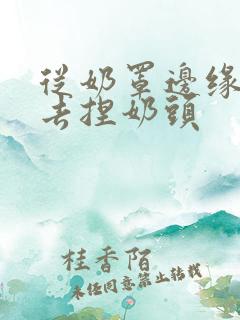 從奶罩邊緣
去捏奶頭
桂香陌
未任同意禁止转载